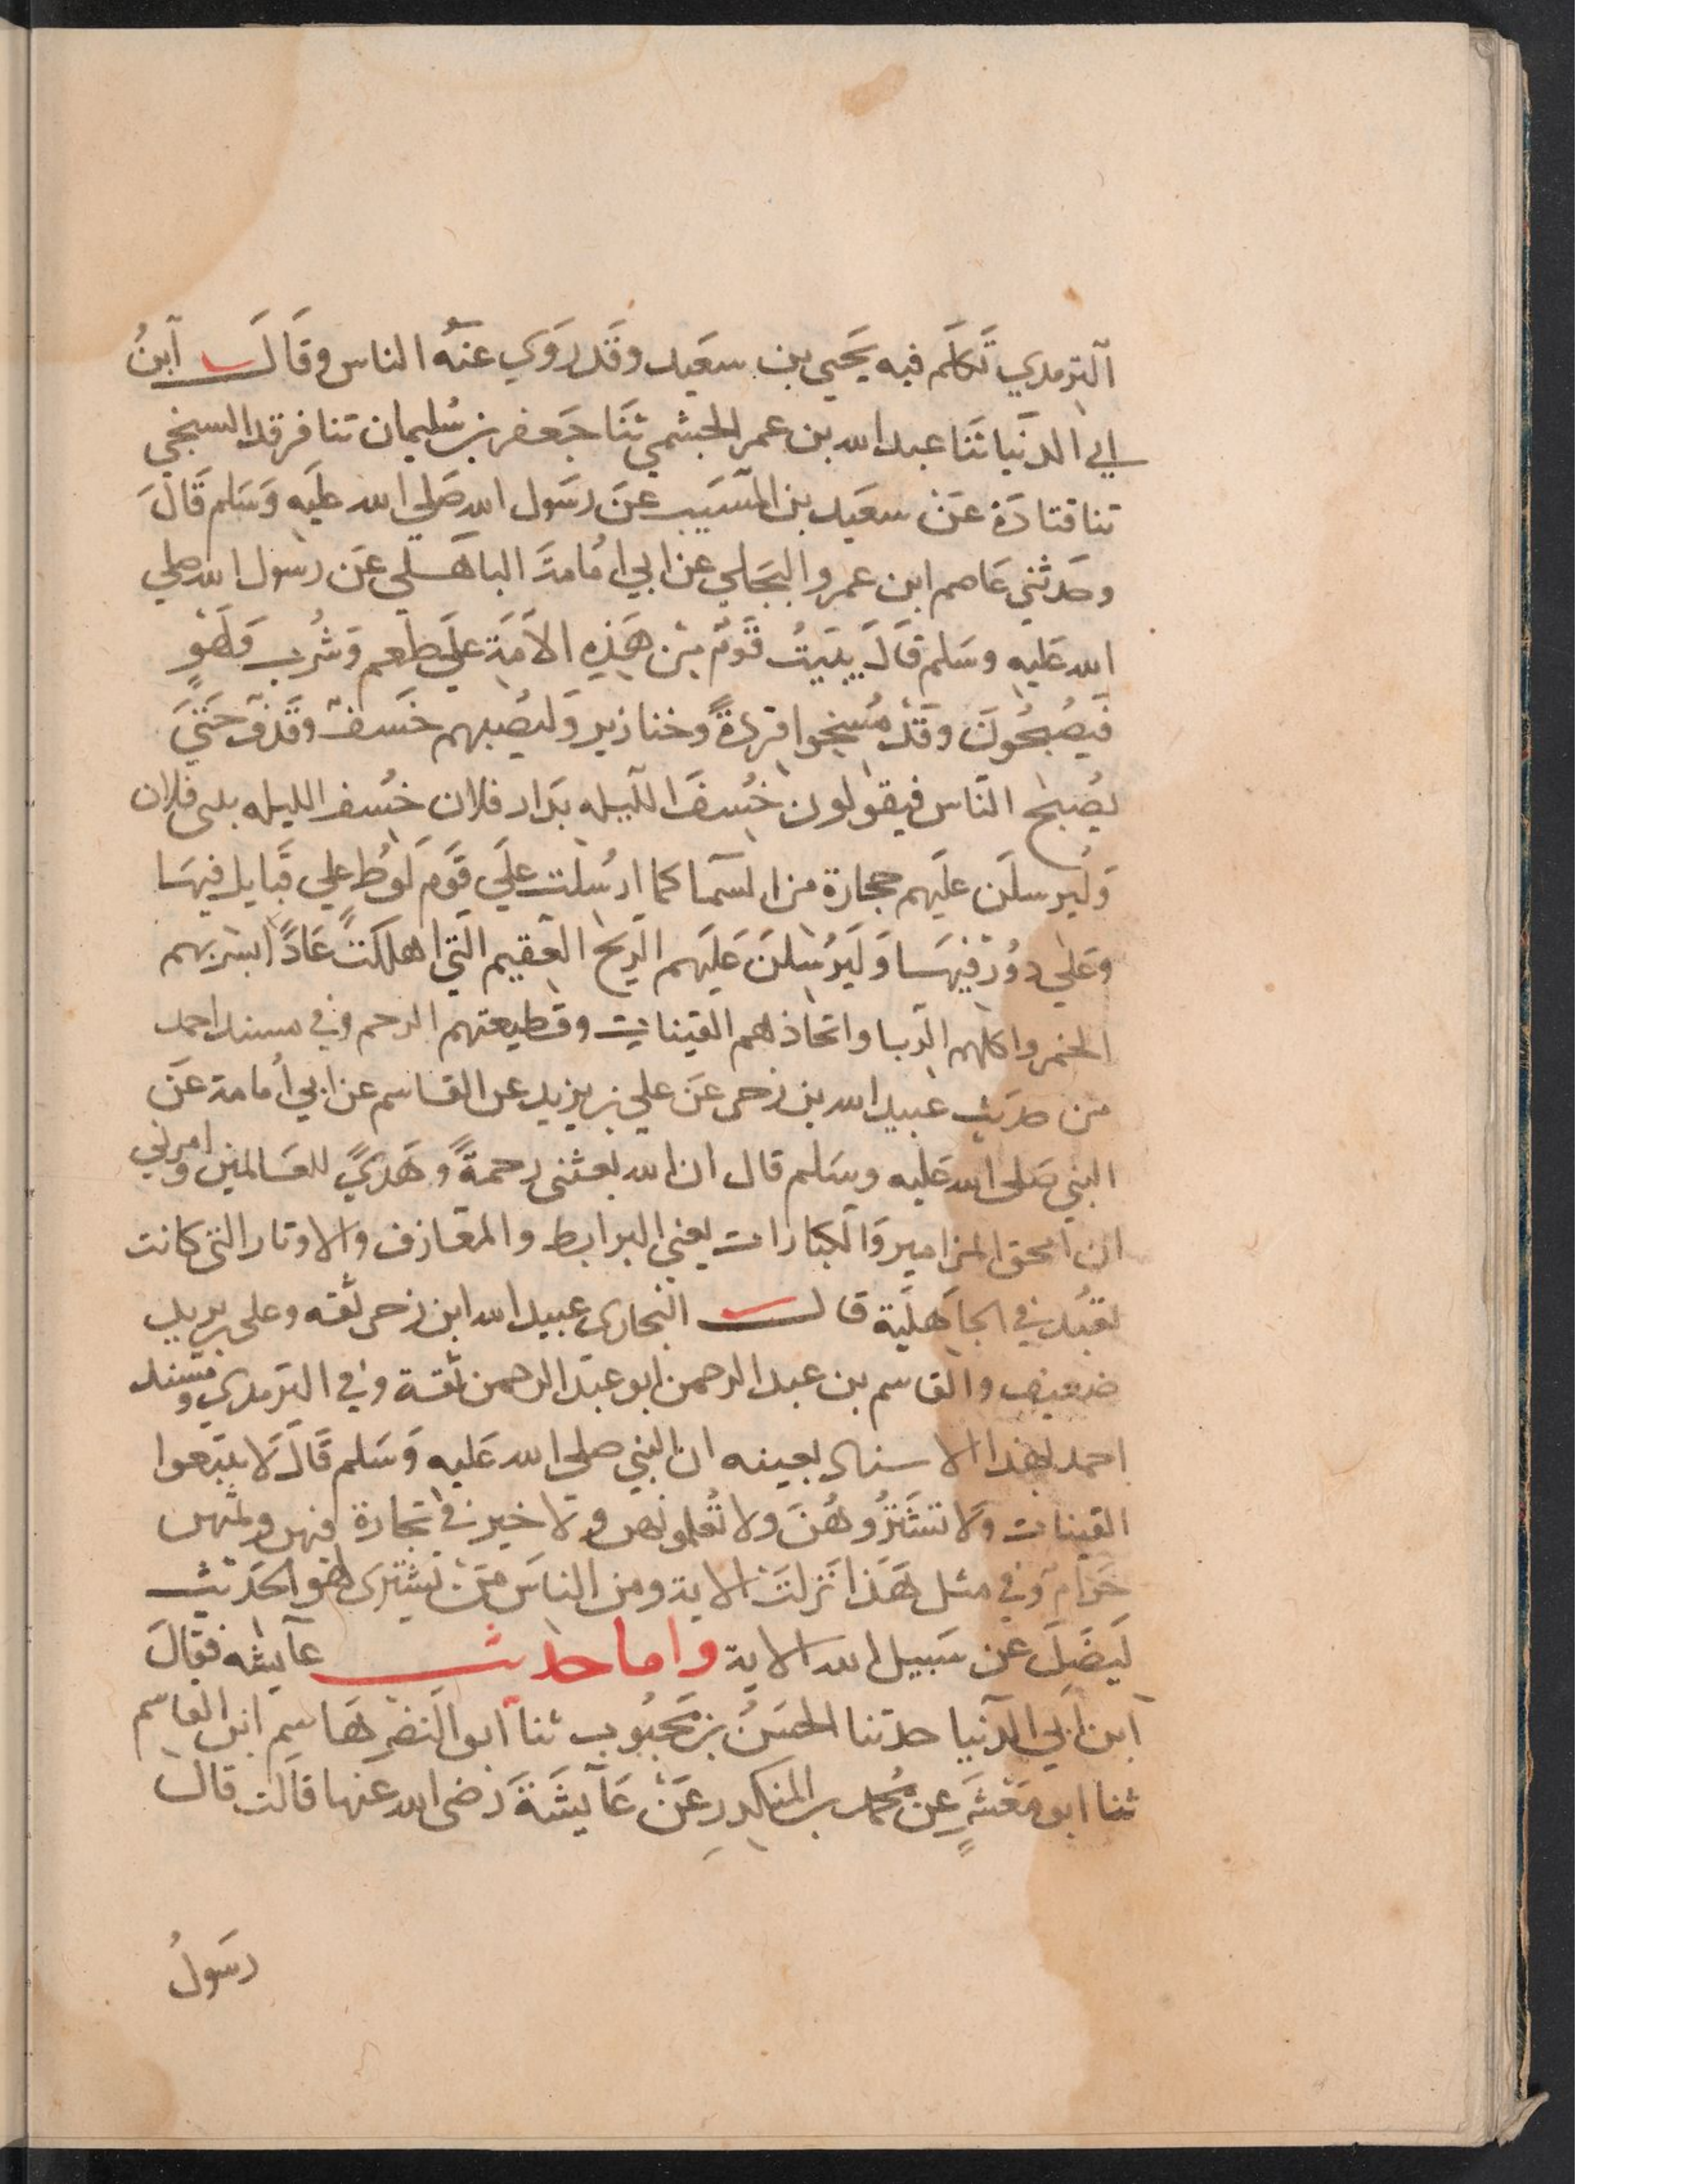 الترمدي تكلم فيه يحيى بن سعيد وقد روي عنه الناس وقال ابن
ابي الدنيا ثنا عبد الله بن عمر الجشمي ثنا جعفر بن سليمان ثنا فرقد السبخي
ثنا قتادة عن سعيد بن المسيب عن رسول الله صلي الله عليه وسلم قال
وحدثني عاصم ابن عمرو البجلي عن ابي امامة الباهلي عن رسول الله صلي
الله عليه وسلم قال يبيت قوم من هذه الامة علي طعم وشرب ولهو
فيصبحون وقد مسخوا قردة وخنازير وليصبهم خسف وقذف حتي
يصبح الناس فيقولون خسف الليله بدار فلان خسف الليله ببني فلان
وليرسلن عليهم حجارة من السما كما ارسلت علي قوم لوط علي قبايل فيها
وعلي دور فيها وليرسلن عليهم الريح العقيم التي اهلكت عادا بشربهم
الخمر واكلهم الربا واتخاذهم القينات وقطيعتهم الرحم وفي مسند احمد
من حديث عبيد الله بن زحر عن علي بن يزيد عن القاسم عن ابي أمامة عن
النبي صلى الله عليه وسلم قال ان الله بعثني رحمة وهدي للعالمين وامرني
ان امحق المزامير والكبارات يعني البرابط والمعازف والاوتار التي كانت
تعبد في الجاهلية قال البخاري عبيد الله ابن زحر ثقه وعلي بن يزيد
ضعيف والقاسم بن عبد الرحمن ابو عبد الرحمن ثقة وفي الترمدي ومسند
احمد بهذا الاسناد بعينه ان النبي صلي الله عليه وسلم قال لا تبتعوا
القينات ولا تشتروهن ولا تعلموهن ولا خير في تجارة فيهن وثمنهن
حرام وفي مثل هذا نزلت الاية ومن الناس من يشترى لهو الحديث
ليضل عن سبيل الله الاية واما حديث عايشه فقال
ابن ابي الدنيا حدثنا الحسن بن محبوب ثنا ابو النضر هاشم ابن القاسم
ثنا ابو معشر عن محمد بن المنكدر عن عايشة رضي الله عنها قالت قال
رسول